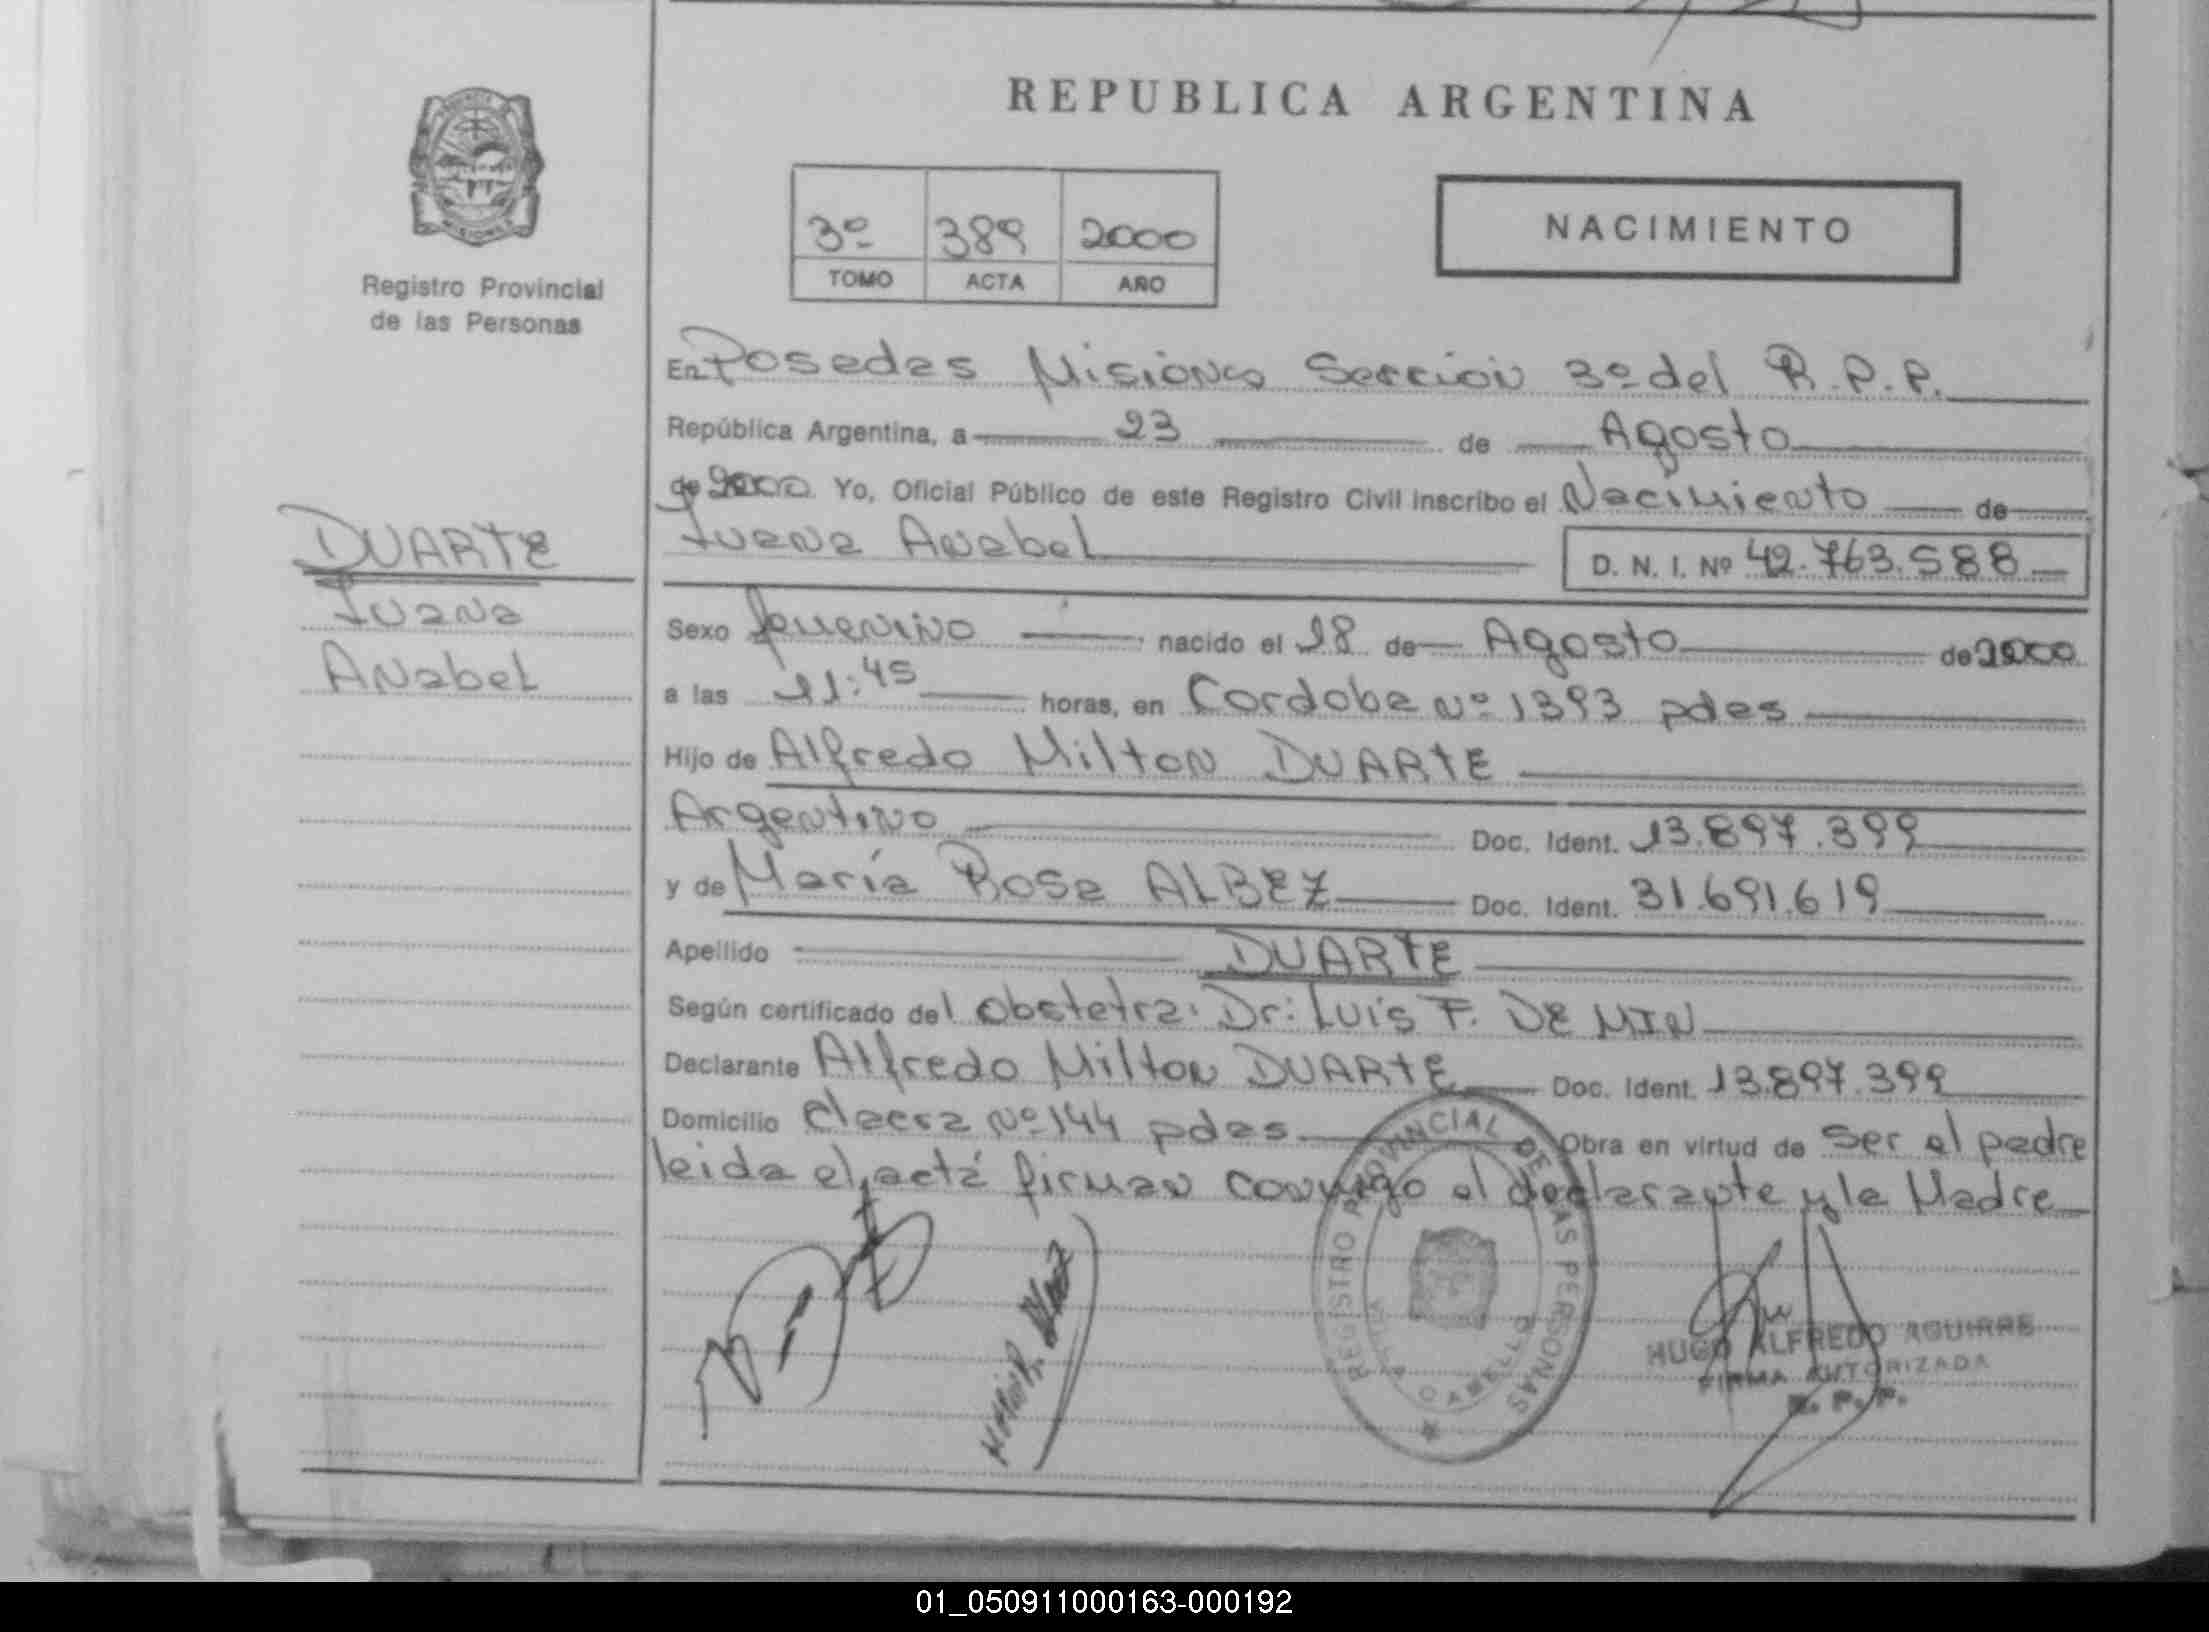 REPUBLICA ARGENTINA
MISIONES
Registro Provincial
de las Personas
3º 389 2000
TOMO ACTA AÑO
NACIMIENTO
En Posadas Misiones Sección 3º del R.P.P.
República Argentina, a 23 de Agosto
de 2000 Yo, Oficial Público de este Registro Civil inscribo el Nacimiento de
Juana Anabel
D. N. I. Nº 42.763.588
DUARTE
Juana
Anabel
Sexo femenino nacido el 18 de Agosto de 2000
a las 11:45 horas, en Cordoba Nº 1393 pdas
Hijo de Alfredo Milton DUARTE
Argentino Doc. Ident. 13.897.399
y de María Rosa ALBEZ Doc. Ident. 31.691.619
Apellido DUARTE
Según certificado del obstetra: Dr: Luis F. DE MIN
Declarante Alfredo Milton DUARTE Doc. Ident. 13.897.399
Domicilio chacra Nº 144 pdas Obra en virtud de ser el padre
leida el acta firman conmigo el declarante y la Madre
REGISTRO PROVINCIAL DE LAS PERSONAS
HUGO ALFREDO AGUIRRE
FIRMA AUTORIZADA
R. P. P.
01_050911000163-000192